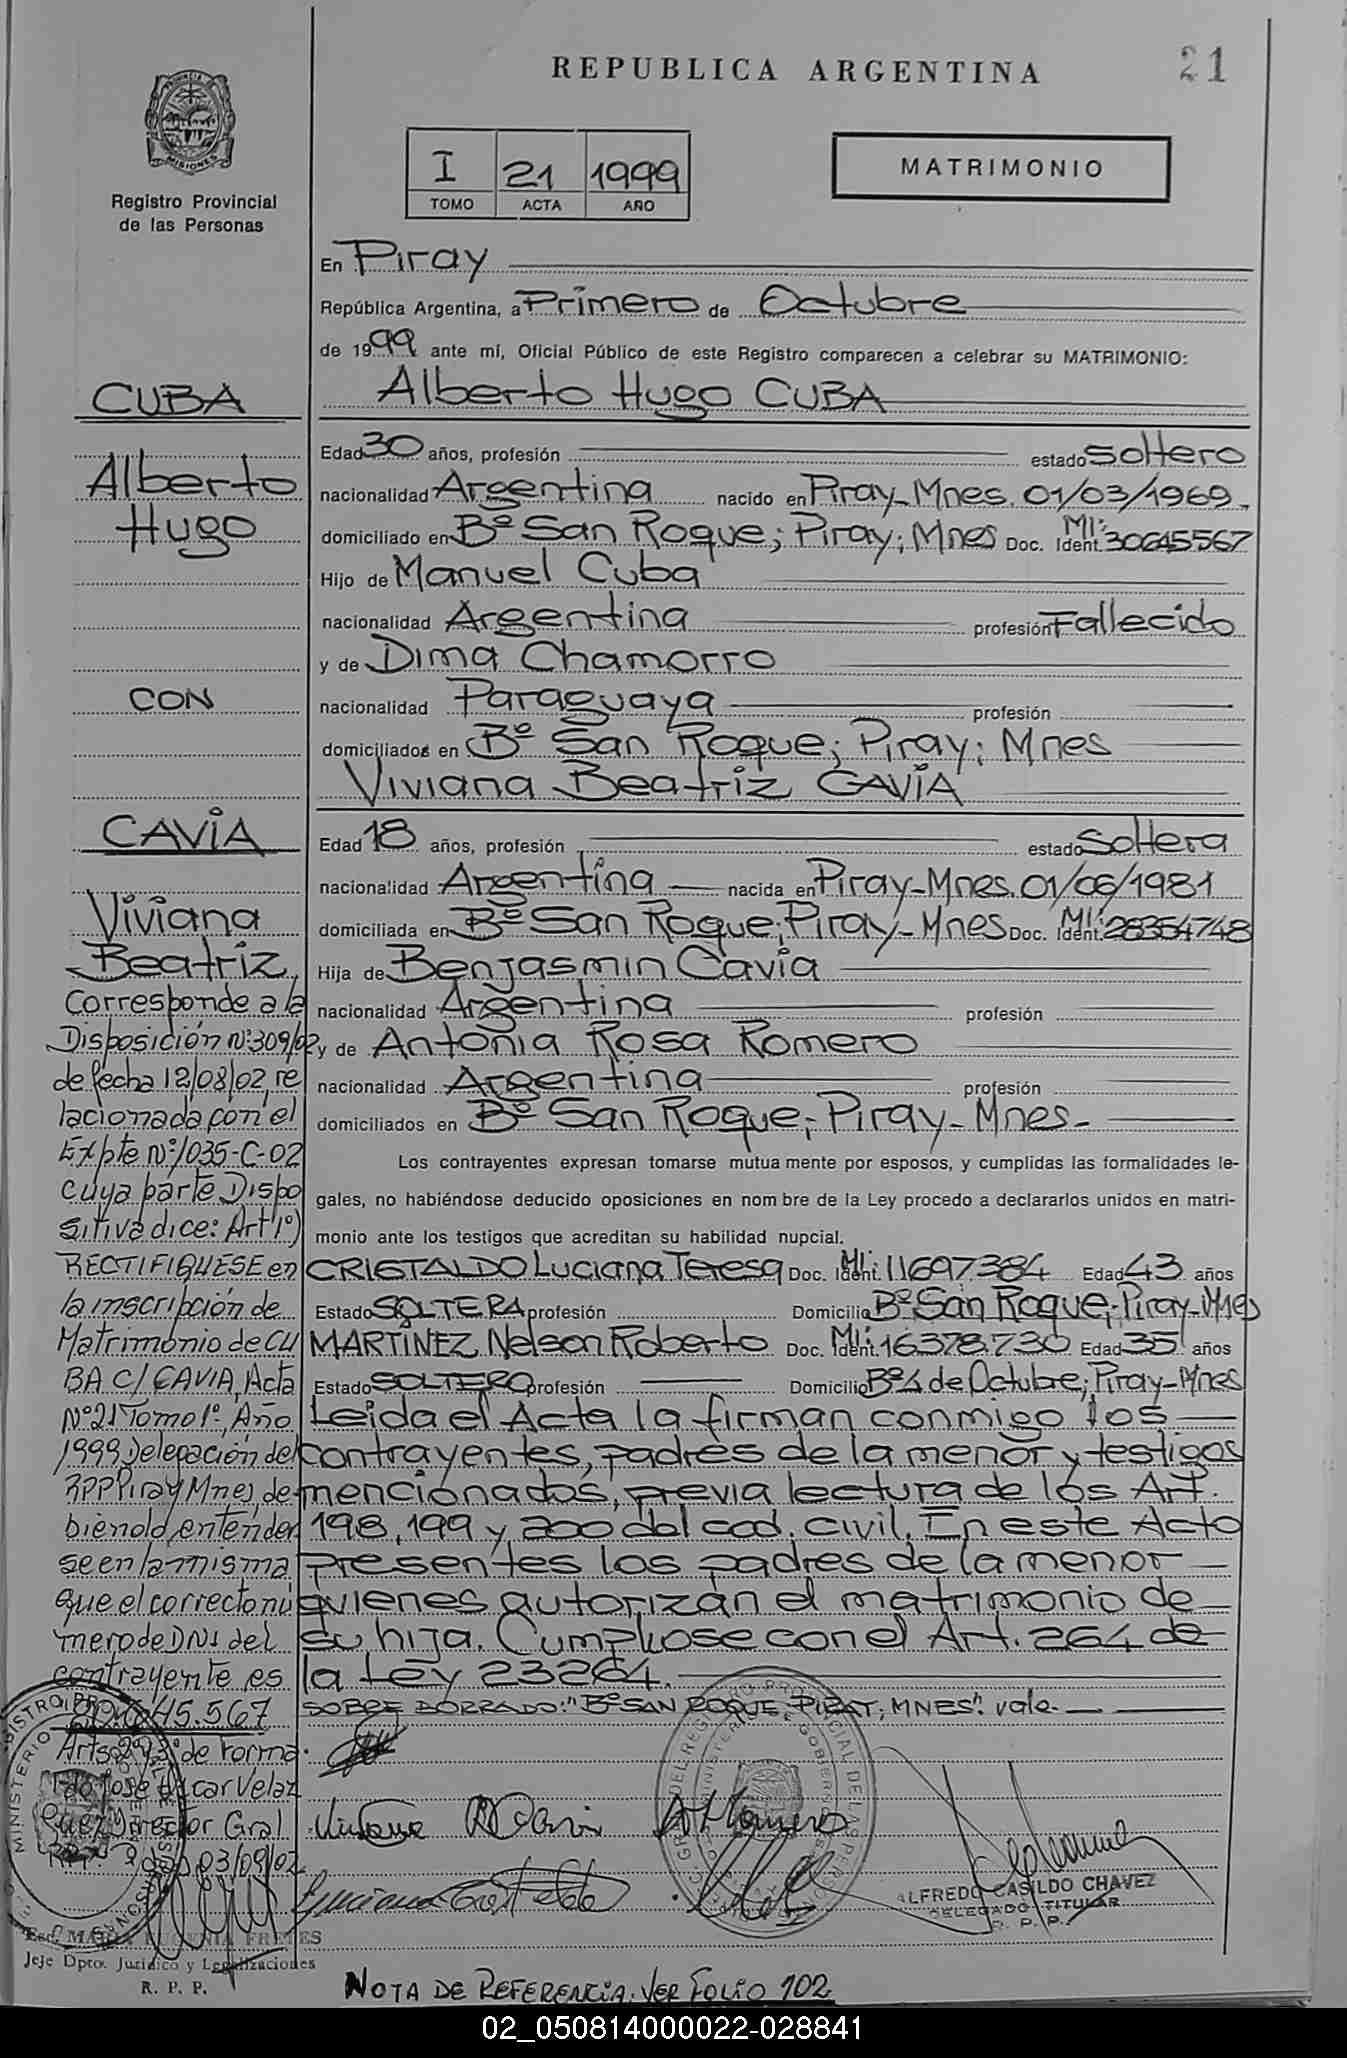 REPUBLICA ARGENTINA
21
MISIONES
Registro Provincial
de las Personas
I 21 1999
TOMO ACTA AÑO
MATRIMONIO
En Piray
República Argentina, a Primero de Octubre
de 1999 ante mí, Oficial Público de este Registro comparecen a celebrar su MATRIMONIO:
Alberto Hugo CUBA
Edad 30 años, profesión estado Soltero
nacionalidad Argentina nacido en Piray-Mnes. 01/03/1969.
domiciliado en Bº San Roque; Piray; Mnes Doc. Ident. MI: 30645567
Hijo de Manuel Cuba
nacionalidad Argentina profesión Fallecido
y de Dima Chamorro
nacionalidad Paraguaya profesión
domiciliados en Bº San Roque; Piray; Mnes
Viviana Beatriz CAVIA
Edad 18 años, profesión estado Soltera
nacionalidad Argentina nacida en Piray-Mnes. 01/06/1981
domiciliada en Bº San Roque; Piray-Mnes Doc. Ident. MI: 28354748
Hija de Benjasmin Cavia
nacionalidad Argentina profesión
y de Antonia Rosa Romero
nacionalidad Argentina profesión
domiciliados en Bº San Roque; Piray-Mnes-
Los contrayentes expresan tomarse mutua mente por esposos, y cumplidas las formalidades le-
gales, no habiéndose deducido oposiciones en nom bre de la Ley procedo a declararlos unidos en matri-
monio ante los testigos que acreditan su habilidad nupcial.
CRISTALDO Luciana Teresa Doc. Ident. MI: 11697384 Edad 43 años
Estado SOLTERA profesión Domicilio Bº San Roque; Piray-Mnes
MARTINEZ Nelson Roberto Doc. Ident. MI: 16.378.730 Edad 35 años
Estado SOLTERO profesión Domicilio Bº 4 de Octubre; Piray-Mnes
Leida el Acta la firman conmigo los
contrayentes, padres de la menor y testigos
mencionados, previa lectura de los Art.
198, 199 y 200 del cod. civil. En este Acto
presentes los padres de la menor
quienes autorizan el matrimonio de
su hija. Cumpliose con el Art. 264 de
la Ley 23264.
SOBRE BORRADO: "Bº SAN ROQUE, PIRAY, MNES". vale.
CUBA
Alberto
Hugo
CON
CAVIA
Viviana
Beatriz
Corresponde a la
Disposición Nº 309/02
de fecha 12/08/02, re
lacionada con el
Expte Nº 1035-C-02
cuya parte Dispo
sitiva dice: Art 1º)
RECTIFIQUESE en
la inscripción de
Matrimonio de CU
BA C/ CAVIA, Acta
Nº 21 Tomo 1º, Año
1999, Delegación del
RPP Piray Mnes, de
biendo, entender
se en la misma
que el correcto nú
mero de DNI del
contrayente es
30.645.567
Arts 2º y 3º de forma.
Fdo Jose Oscar Velaz
quez Director Gral
03/09/02
Viviana B Cavia
A R Romero
Luciana Cristaldo
ALFREDO CASILDO CHAVEZ
DELEGADO TITULAR
R. P. P.
Esc. MARIA EUGENIA FRETES
Jefe Dpto. Jurídico y Legalizaciones
R. P. P.
NOTA DE REFERENCIA: VER FOLIO 102
02_050814000022-028841